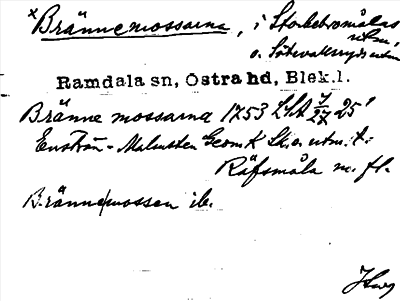 × Brännemossarna, i Storketromålas
utm.
o. Sätevallsryds utm
Ramdala sn, Östra hd, Blek. l.
Bränne mossarna 1753 LSA 7/27 25'
Enström - Malmsten Geom K St. o. utm. t.
Räfsmåla m. fl.
B. ränne/mossen ib.